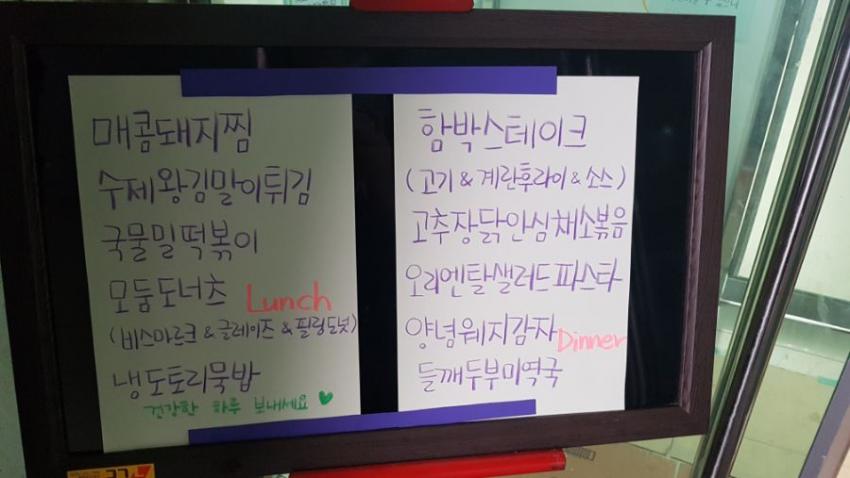 매콤돼지찜
수제왕김말이튀김
국물밀떡볶이
모둠도너츠 Lunch
(비스마르크&글레이즈&필링도넛)
냉도토리묵밥
건강한 하루 보내세요 ♥
함박스테이크
(고기&계란후라이&소스)
고추장닭안심채소볶음
오리엔탈샐러드파스타
양념웨지감자 Dinner
들깨두부미역국